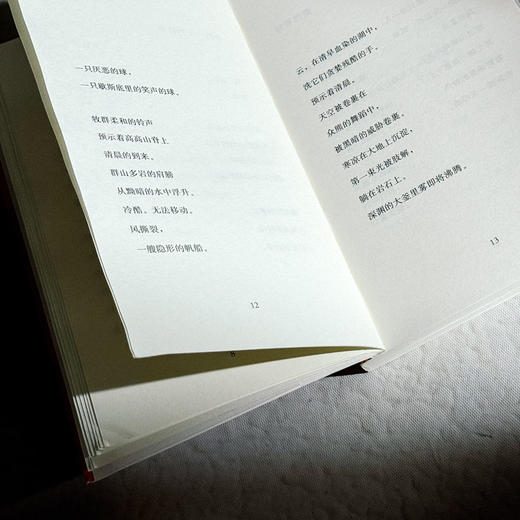 一只厌恶的球，
一只歇斯底里的笑声的球。
牧群柔和的铃声
预示着高高山脊上
清晨的到来。
群山多岩的肩膀
从黝暗的水中浮升。
冷酷。无法移动。
风撕裂，
一艘隐形的帆船。
12
8
云，在清早血染的湖中，
洗它们贪婪残酷的手。
预示着清晨。
天空被卷裹在
众熊的舞蹈中，
被黑暗的威胁卷裹，
寒凉在大地上沉淀，
第一束光被肢解，
躺在岩石上。
深渊的大釜里雾即将沸腾。
13